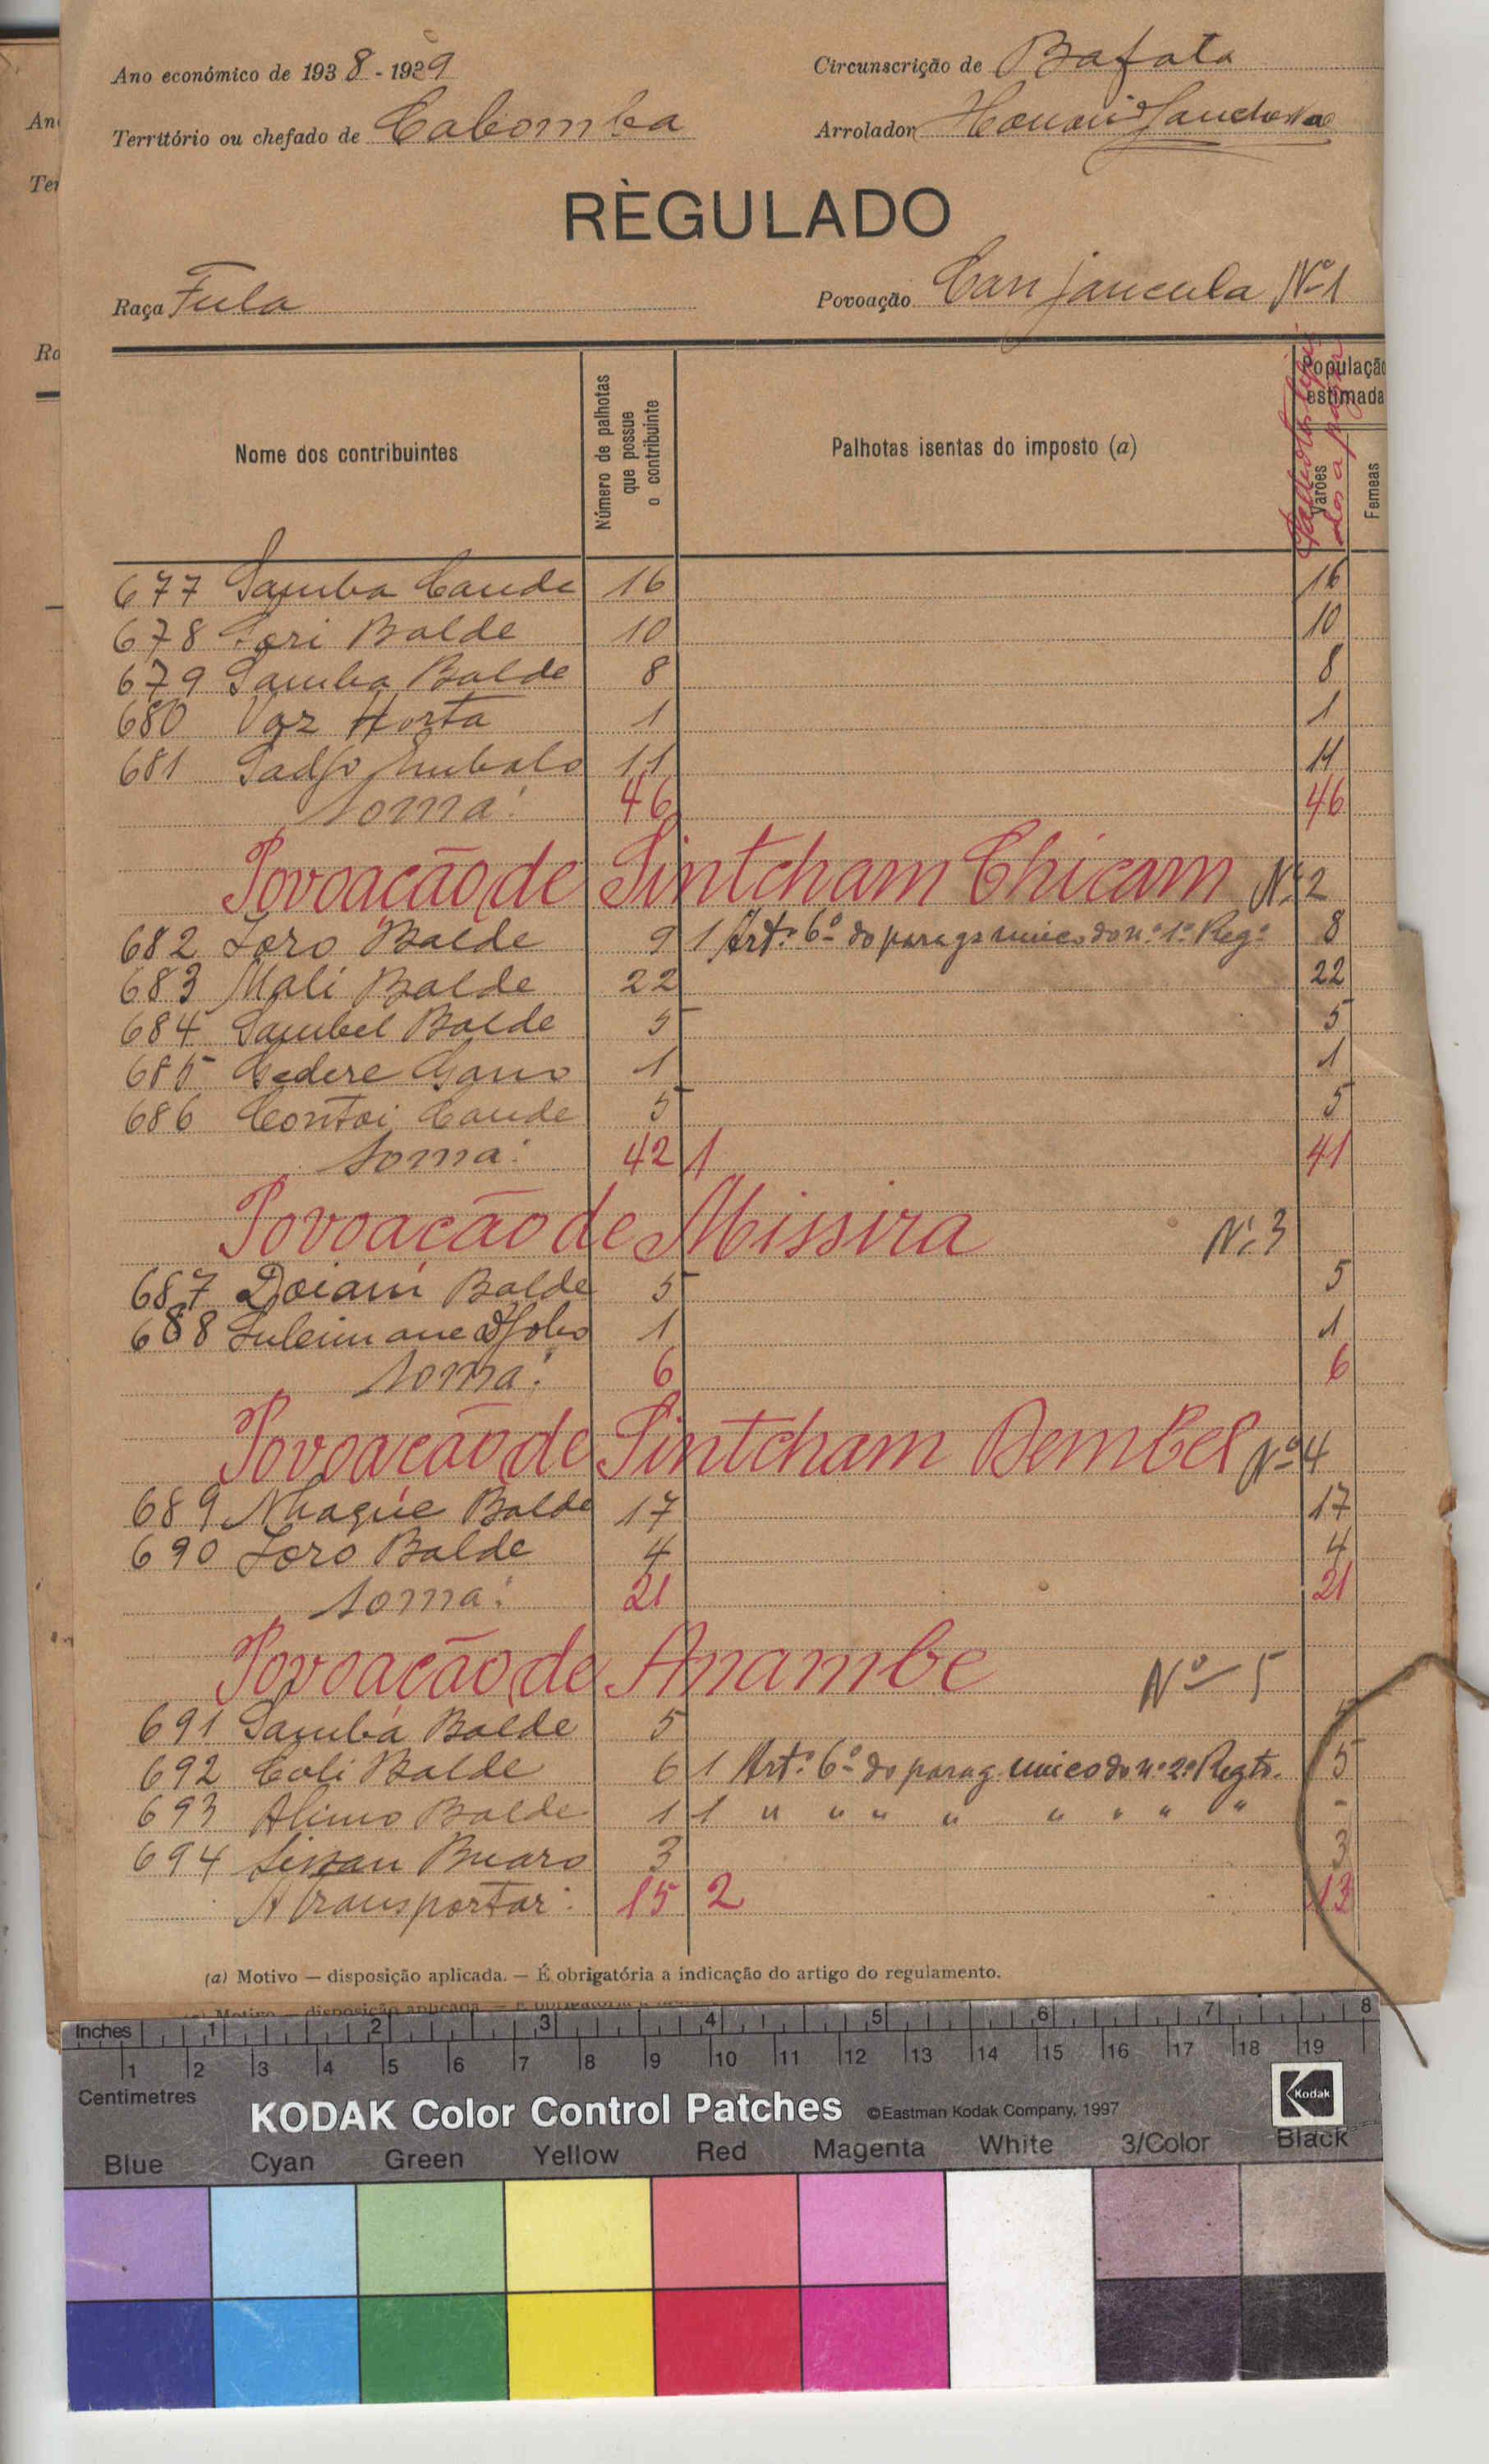 Ano económico de 1938 - 1939
Circunscrição de Bafata
Território ou chefado de Cabomba
Arrolador
RÈGULADO
Raça Fula
Povoação Canjancula Nº 1
Nome dos contribuintes
Número de palhotas que possue o contribuinte
Palhotas isentas do imposto (a)
População estimada
Varões
Femeas
677 Samba Cande 16 16
678 Sori Balde 10 10
679 Samba Balde 8 8
680 Vaz Horta 1 1
681 Sadjo Embalo 11 11
Soma: 46 46
Povoação de Sintcham Chicam Nº 2
682 Loro Balde 9 1 Artº 6º do paragº unico do nº 1º Regº 8
683 Mali Balde 22 22
684 Sambel Balde 5 5
685 Gano 1 1
686 Contoi Cande 5 5
Soma: 42 1 41
Povoação de Missira Nº 3
687 Doiam Balde 5 5
688 Suleimane 1 1
Soma: 6 6
Povoação de Sintcham Dembel Nº 4
689 Nhaque Balde 17 17
690 Loro Balde 4 4
Soma: 21 21
Povoação de Anambe Nº 5
691 Samba Balde 5 5
692 Coli Balde 6 1 Artº 6º do parag. unico do nº 2º Regto. 5
693 Alimo Balde 1 1 " " " " " " " " -
694 Buaro 3 3
A transportar: 15 2 13
(a) Motivo — disposição aplicada. — É obrigatória a indicação do artigo do regulamento.
Inches 1 2 3 4 5 6 7 8
1 2 3 4 5 6 7 8 9 10 11 12 13 14 15 16 17 18 19
Centimetres
KODAK Color Control Patches ©Eastman Kodak Company, 1997 Kodak
Blue Cyan Green Yellow Red Magenta White 3/Color Black